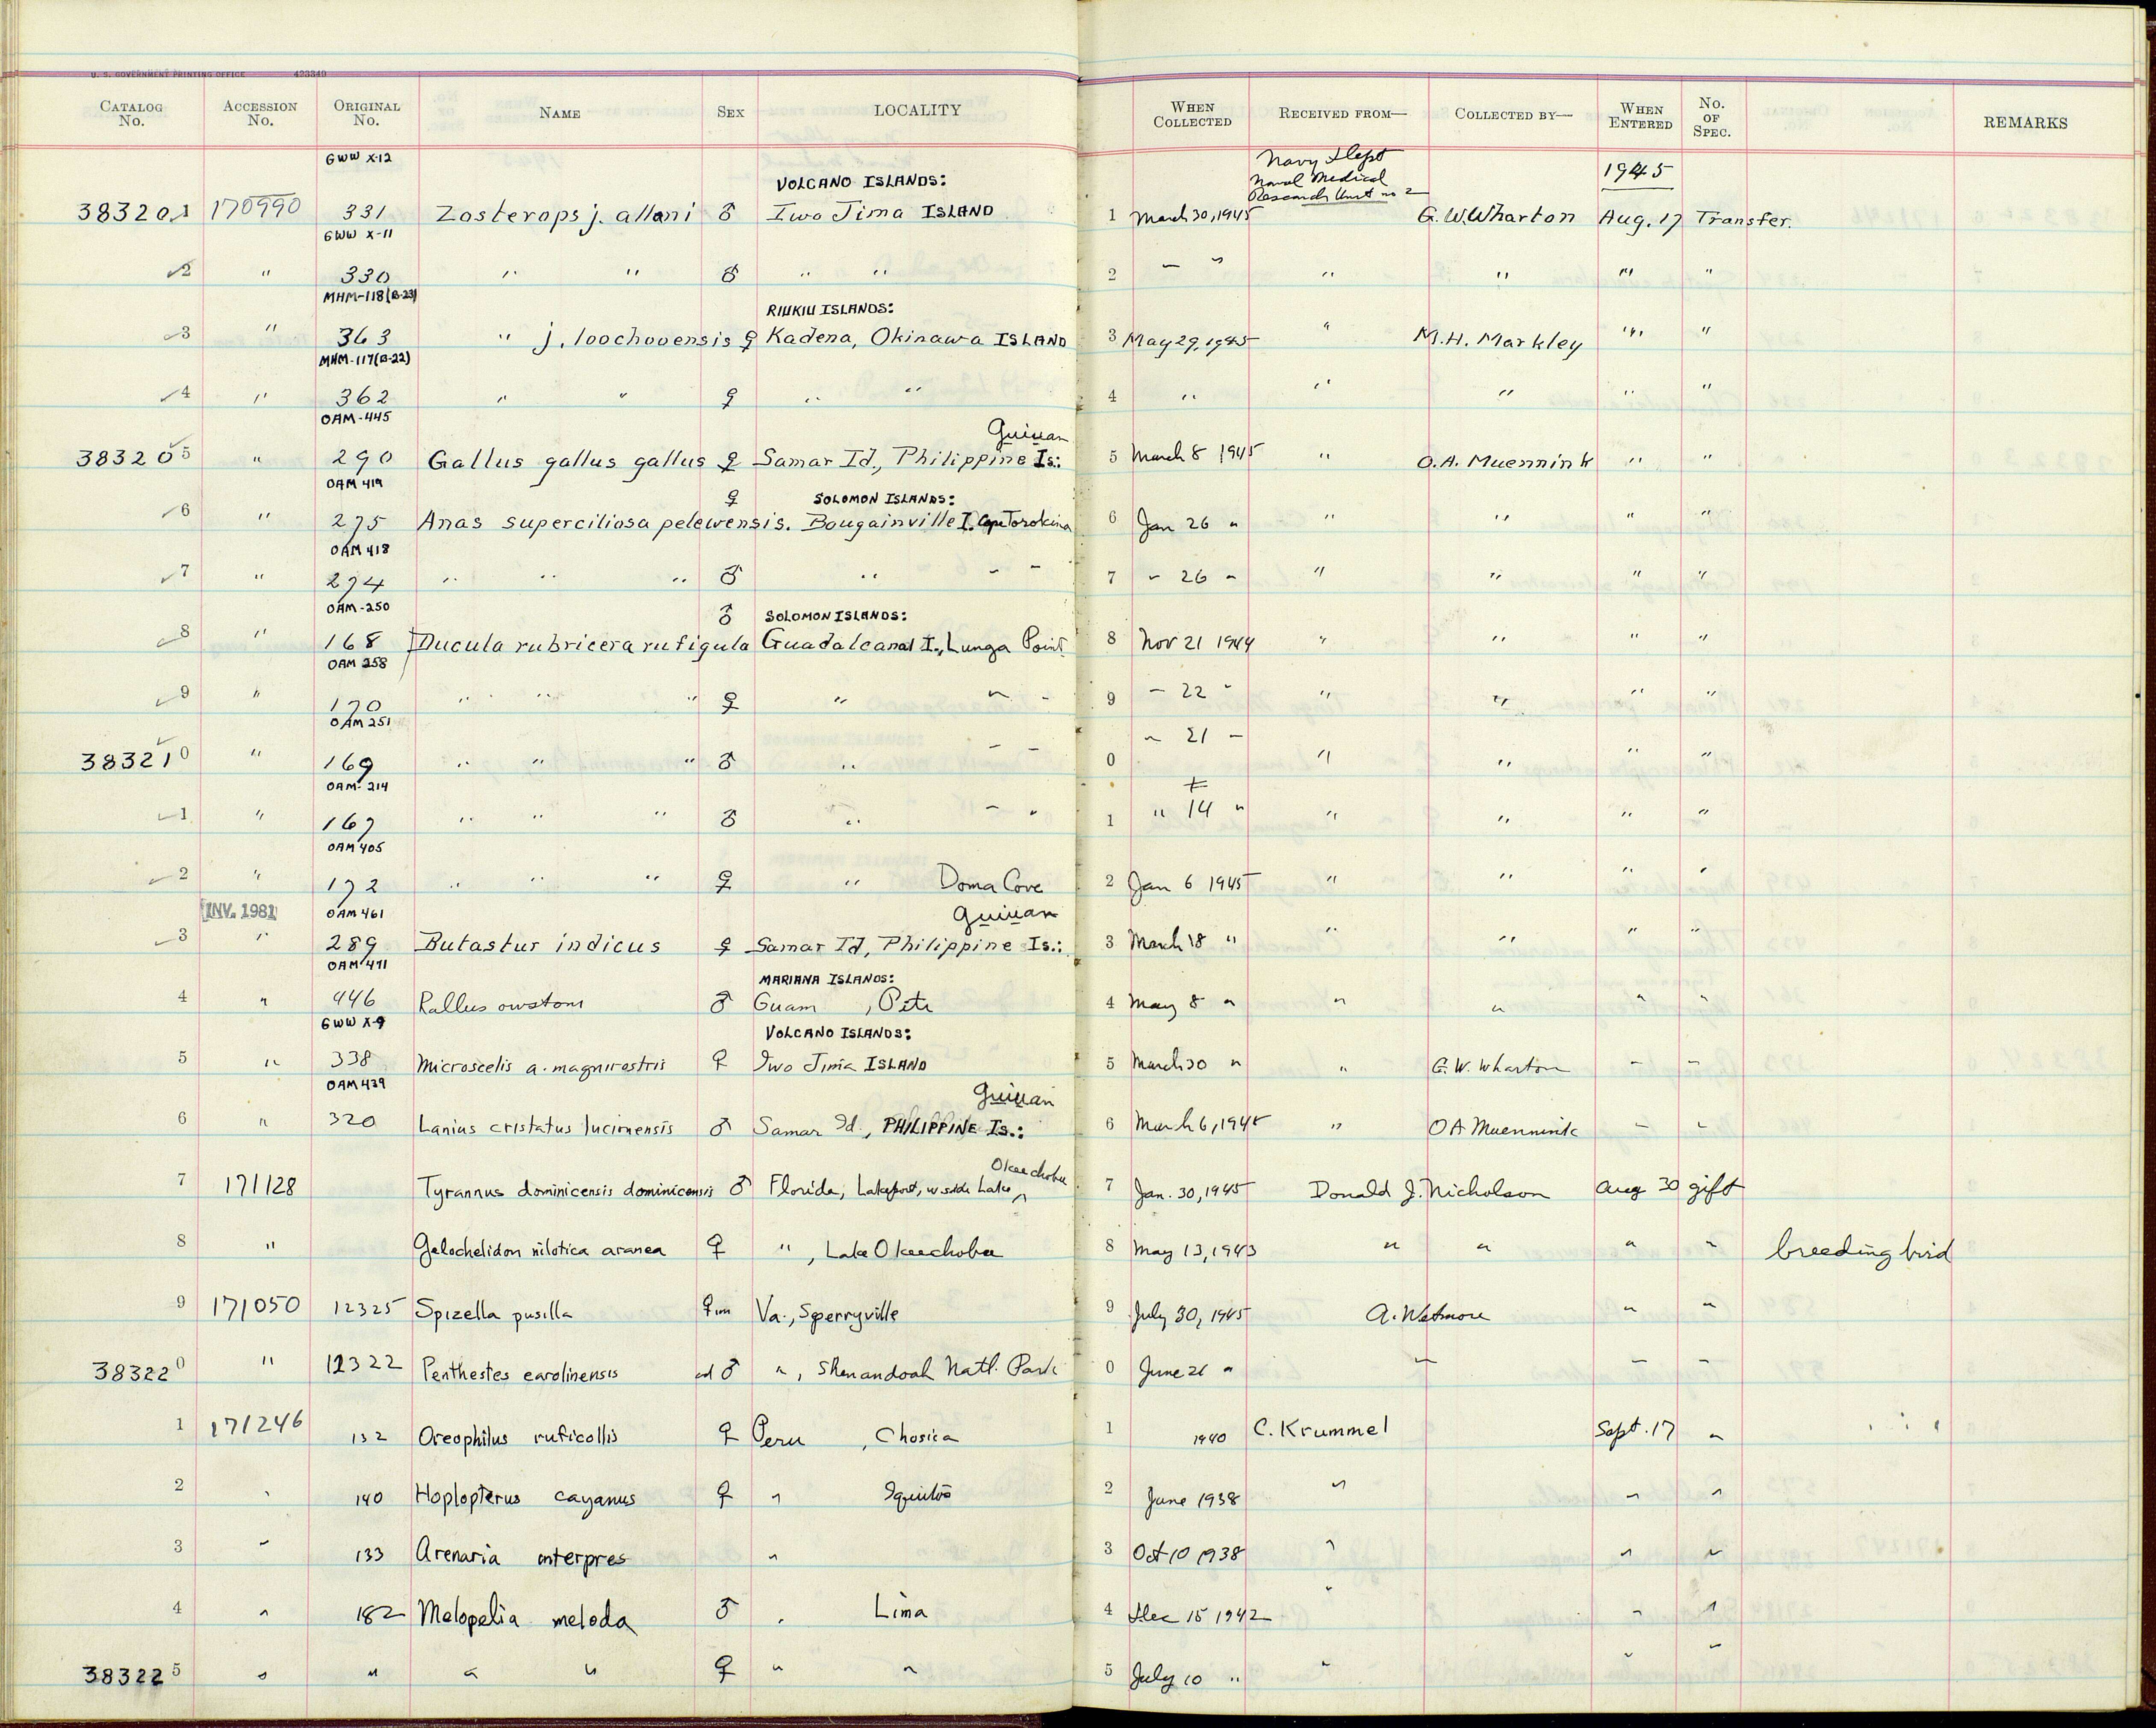 U. S. GOVERNMENT PRINTING OFFICE 423340
CATALOG No. ACCESSION No. ORIGINAL No. NAME SEX LOCALITY WHEN COLLECTED RECEIVED FROM— COLLECTED BY— WHEN ENTERED No. OF SPEC. REMARKS
GWW X-12 VOLCANO ISLANDS: Navy Dept Naval Medical Research Unit no 2 1945
383201 170990 331 Zosterops j. alloni ♂ Iwo Jima ISLAND 1 March 30, 1945 G.W.Wharton Aug. 17 Transfer.
GWW X-11
2 " 330 " " ♂ " " 2 " " " " " "
MHM-118(B-23) RIUKIU ISLANDS:
3 " 363 " j. loochooensis ♀ Kadena, Okinawa ISLAND 3 May 29, 1945 " M.H. Markley " "
MHM-117(B-22)
4 " 362 " " ♀ " " 4 " " " " "
OAM-445 Guiuan
383205 " 290 Gallus gallus gallus ♀ Samar Id., Philippine Is.: 5 March 8 1945 " O.A. Muennink " "
OAM 419 ♀ SOLOMON ISLANDS:
6 " 275 Anas superciliosa pelewensis. Bougainville I. Cape Torokina 6 Jan 26 " " " " "
OAM 418
7 " 274 " " " ♂ " " " 7 " 26 " " " " "
OAM-250 ♂ SOLOMON ISLANDS:
8 " 168 Ducula rubricera rufigula Guadalcanal I., Lunga Point 8 Nov 21 1944 " " " "
OAM 258
9 " 170 " " " ♀ " " " 9 " 22 " " " " "
OAM 251
383210 " 169 " " " ♂ " " " 0 " 21 " " " " "
OAM-214
1 " 167 " " " ♂ " " " 1 " 14 " " " " "
OAM 405
2 " 172 " " " ♀ " Doma Cove 2 Jan 6 1945 " " " "
INV. 1981 OAM 461 Guiuan
3 " 289 Butastur indicus ♀ Samar Id, Philippine Is.: 3 March 18 " " " " "
OAM 471 MARIANA ISLANDS:
4 " 446 Rallus owstoni ♂ Guam , Piti 4 May 8 " " " " "
GWW X-9 VOLCANO ISLANDS:
5 " 338 Microscelis a. magnirostris ♀ Iwo Jima ISLAND 5 March 30 " " G.W. Wharton " "
OAM 439 Guiuan
6 " 320 Lanius cristatus lucionensis ♂ Samar Id., PHILIPPINE Is.: 6 March 6, 1945 " OA Muennink " "
7 171128 Tyrannus dominicensis dominicensis ♂ Florida, Lakeport, w. side Lake Okeechobee 7 Jan. 30, 1945 Donald J. Nicholson Aug 30 gift
8 " Gelochelidon nilotica aranea ♀ " , Lake Okeechobee 8 May 13, 1943 " " " " breeding bird
9 171050 12325 Spizella pusilla ♀ im Va., Sperryville 9 July 30, 1945 A. Wetmore " "
383220 " 12322 Penthestes carolinensis ad ♂ " , Shenandoah Natl. Park 0 June 21 " " " "
1 171246 132 Oreophilus ruficollis ♀ Peru , Chosica 1 1940 C. Krummel Sept. 17 "
2 " 140 Hoplopterus cayanus ♀ " Iquitos 2 June 1938 " " "
3 " 133 Arenaria interpres " 3 Oct 10 1938 " " "
4 " 182 Melopelia meloda ♂ " Lima 4 Dec 15 1942 " " "
383225 " " " " ♀ " " 5 July 10 " " " "